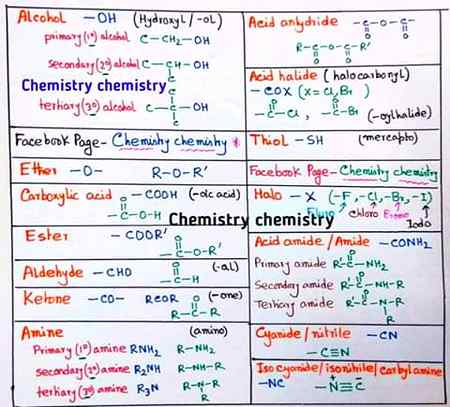 Alcohol —OH (Hydroxyl/-ol)
primary(1°) alcohol C—CH₂—OH
secondary(2°) alcohol C—CH—OH
C
Chemistry chemistry
C
tertiary(3°) alcohol C—C—OH
C
Facebook Page- Chemistry chemistry *
Ether —O— R—O—R'
Carboxylic acid —COOH (-oic acid)
O
—C—O—H
Chemistry chemistry
Ester —COOR'
O
—C—O—R'
Aldehyde —CHO (-al)
O
—C—H
Ketone —CO— RCOR (-one)
O
R—C—R
Amine (amino)
Primary(1°) amine RNH₂ R—NH₂
secondary(2°) amine R₂NH R—NH—R
tertiary(3°) amine R₃N R—N—R
R
Acid anhydride
O O
—C—O—C—
O O
R—C—O—C—R'
Acid halide (halocarbonyl)
—COX (X=Cl, Br)
O O
—C—Cl, —C—Br (-oylhalide)
Thiol —SH (mercapto)
Facebook Page- Chemistry chemistry
Halo —X (-F, -Cl, -Br, -I)
Fluro chloro Bromo
Iodo
Acid amide/Amide —CONH₂
O
Primary amide R'—C—NH₂
O
Secondary amide R'—C—NH—R
O
Tertiary amide R'—C—N—R
R
Cyanide/nitrile —CN
—C≡N
Iso cyanide/isonitrile/carbylamine
—NC —N⁺≡C⁻